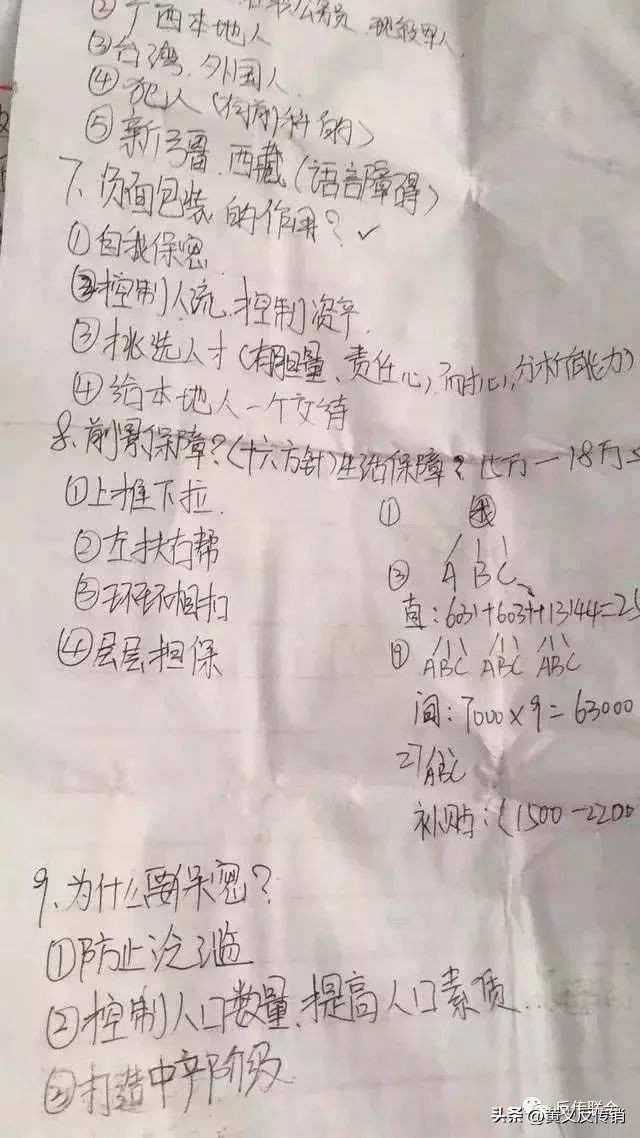 ②广西本地人
③台湾、外国人
④犯人(有前科的)
⑤新疆、西藏(语言障碍)
7、负面包装的作用?✓
①自我保密
②控制人流、控制资产
③挑选人才(有胆量、责任心、耐心、分析能力)
④给本地人一个交待
8、前景保障?(十六方针)生活保障?
①上推下拉
②左扶右帮
③环环相扣
④层层担保
①
③ A B C
直:6031+6031+13144=25
⑨ ABC ABC ABC
间:7000×9=63000
27 ABC
补贴:(1500-2200
9、为什么要保密?
①防止泛滥
②控制人口数量、提高人口素质
③打造中产阶级
反传联合
头条@黄义反传销